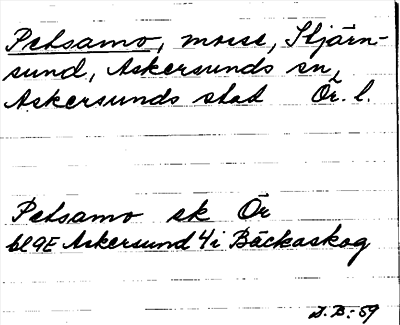 Petsamo, mosse, Stjärn-
sund, Askersunds sn,
Askersunds stad Ör. l.
Petsamo ek Ör
bl 9E Askersund 4i Bäckaskog
D.B:59